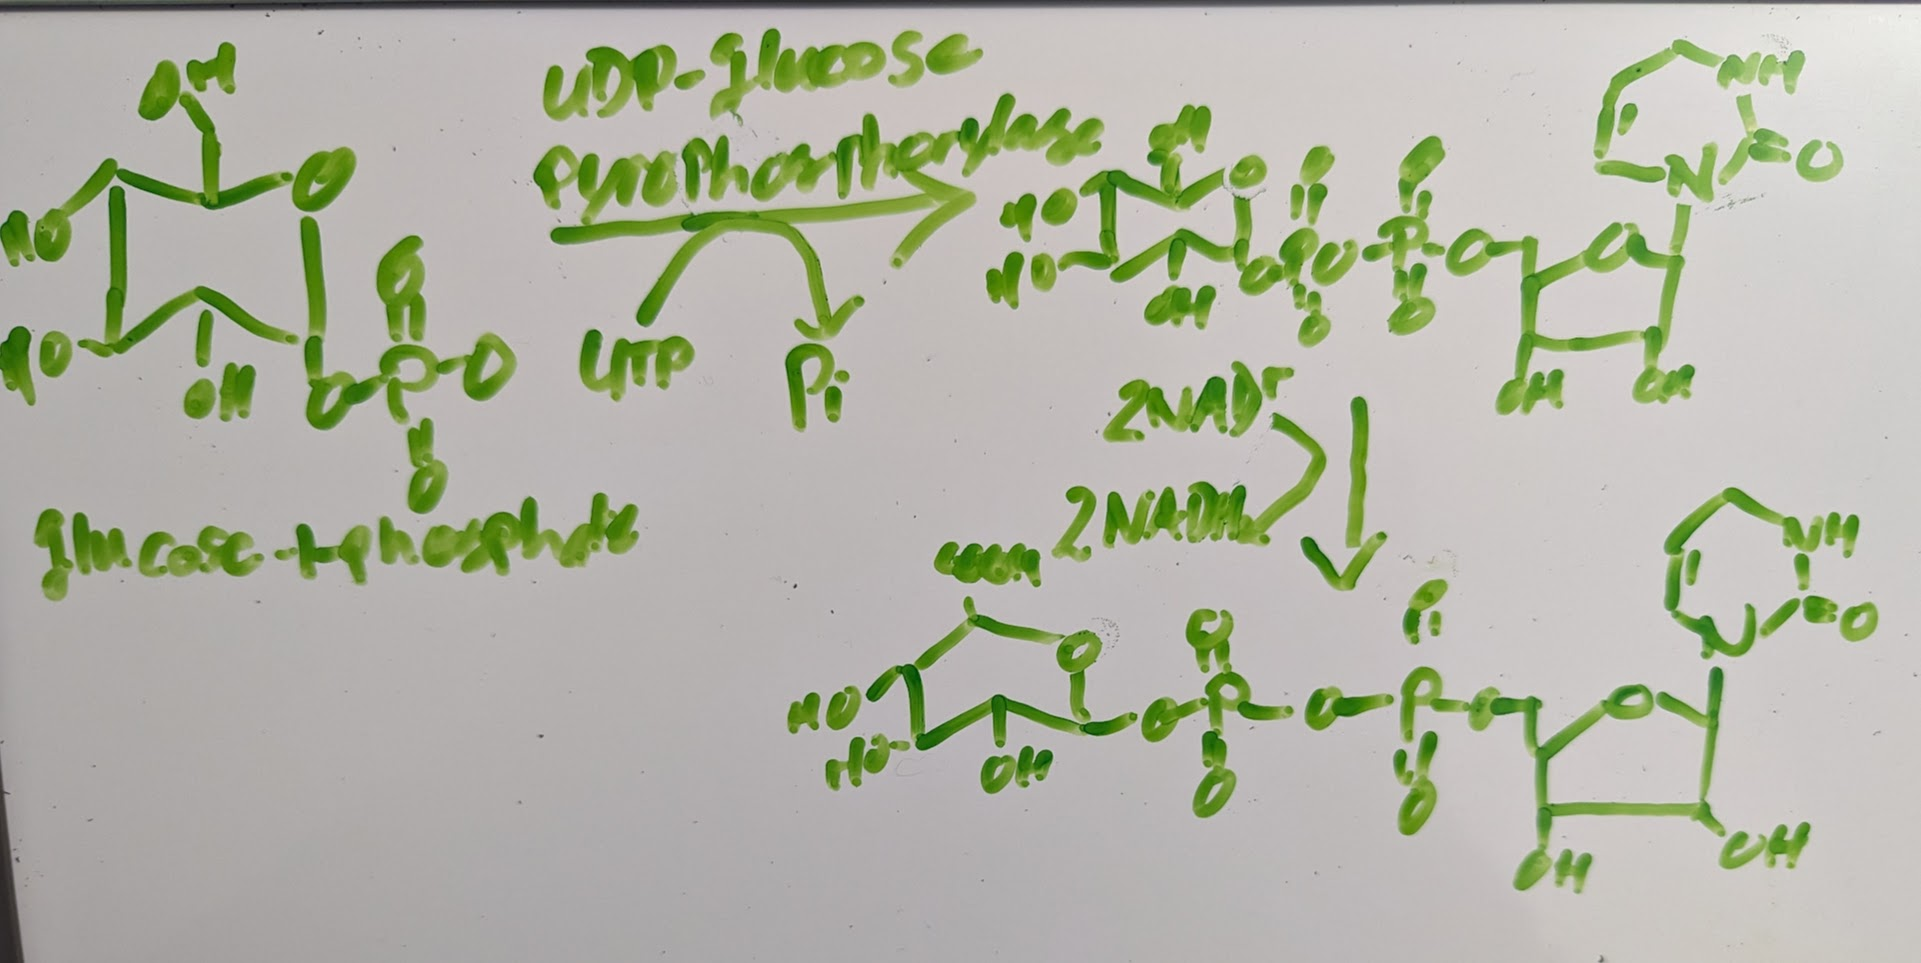 OH
UDP-glucose
pyrophosphorylase
O
HO
HO
OH
O
O-P-O
O
glucose-1-phosphate
UTP
Pi
OH
O
HO
HO
OH
O
O
O
P
O
O
P
O
O
O
NH
N
O
OH
OH
2NAD+
2NADH
COOH
O
HO
HO
OH
O
O
P
O
O
O
P
O
O
O
NH
N
O
OH
OH